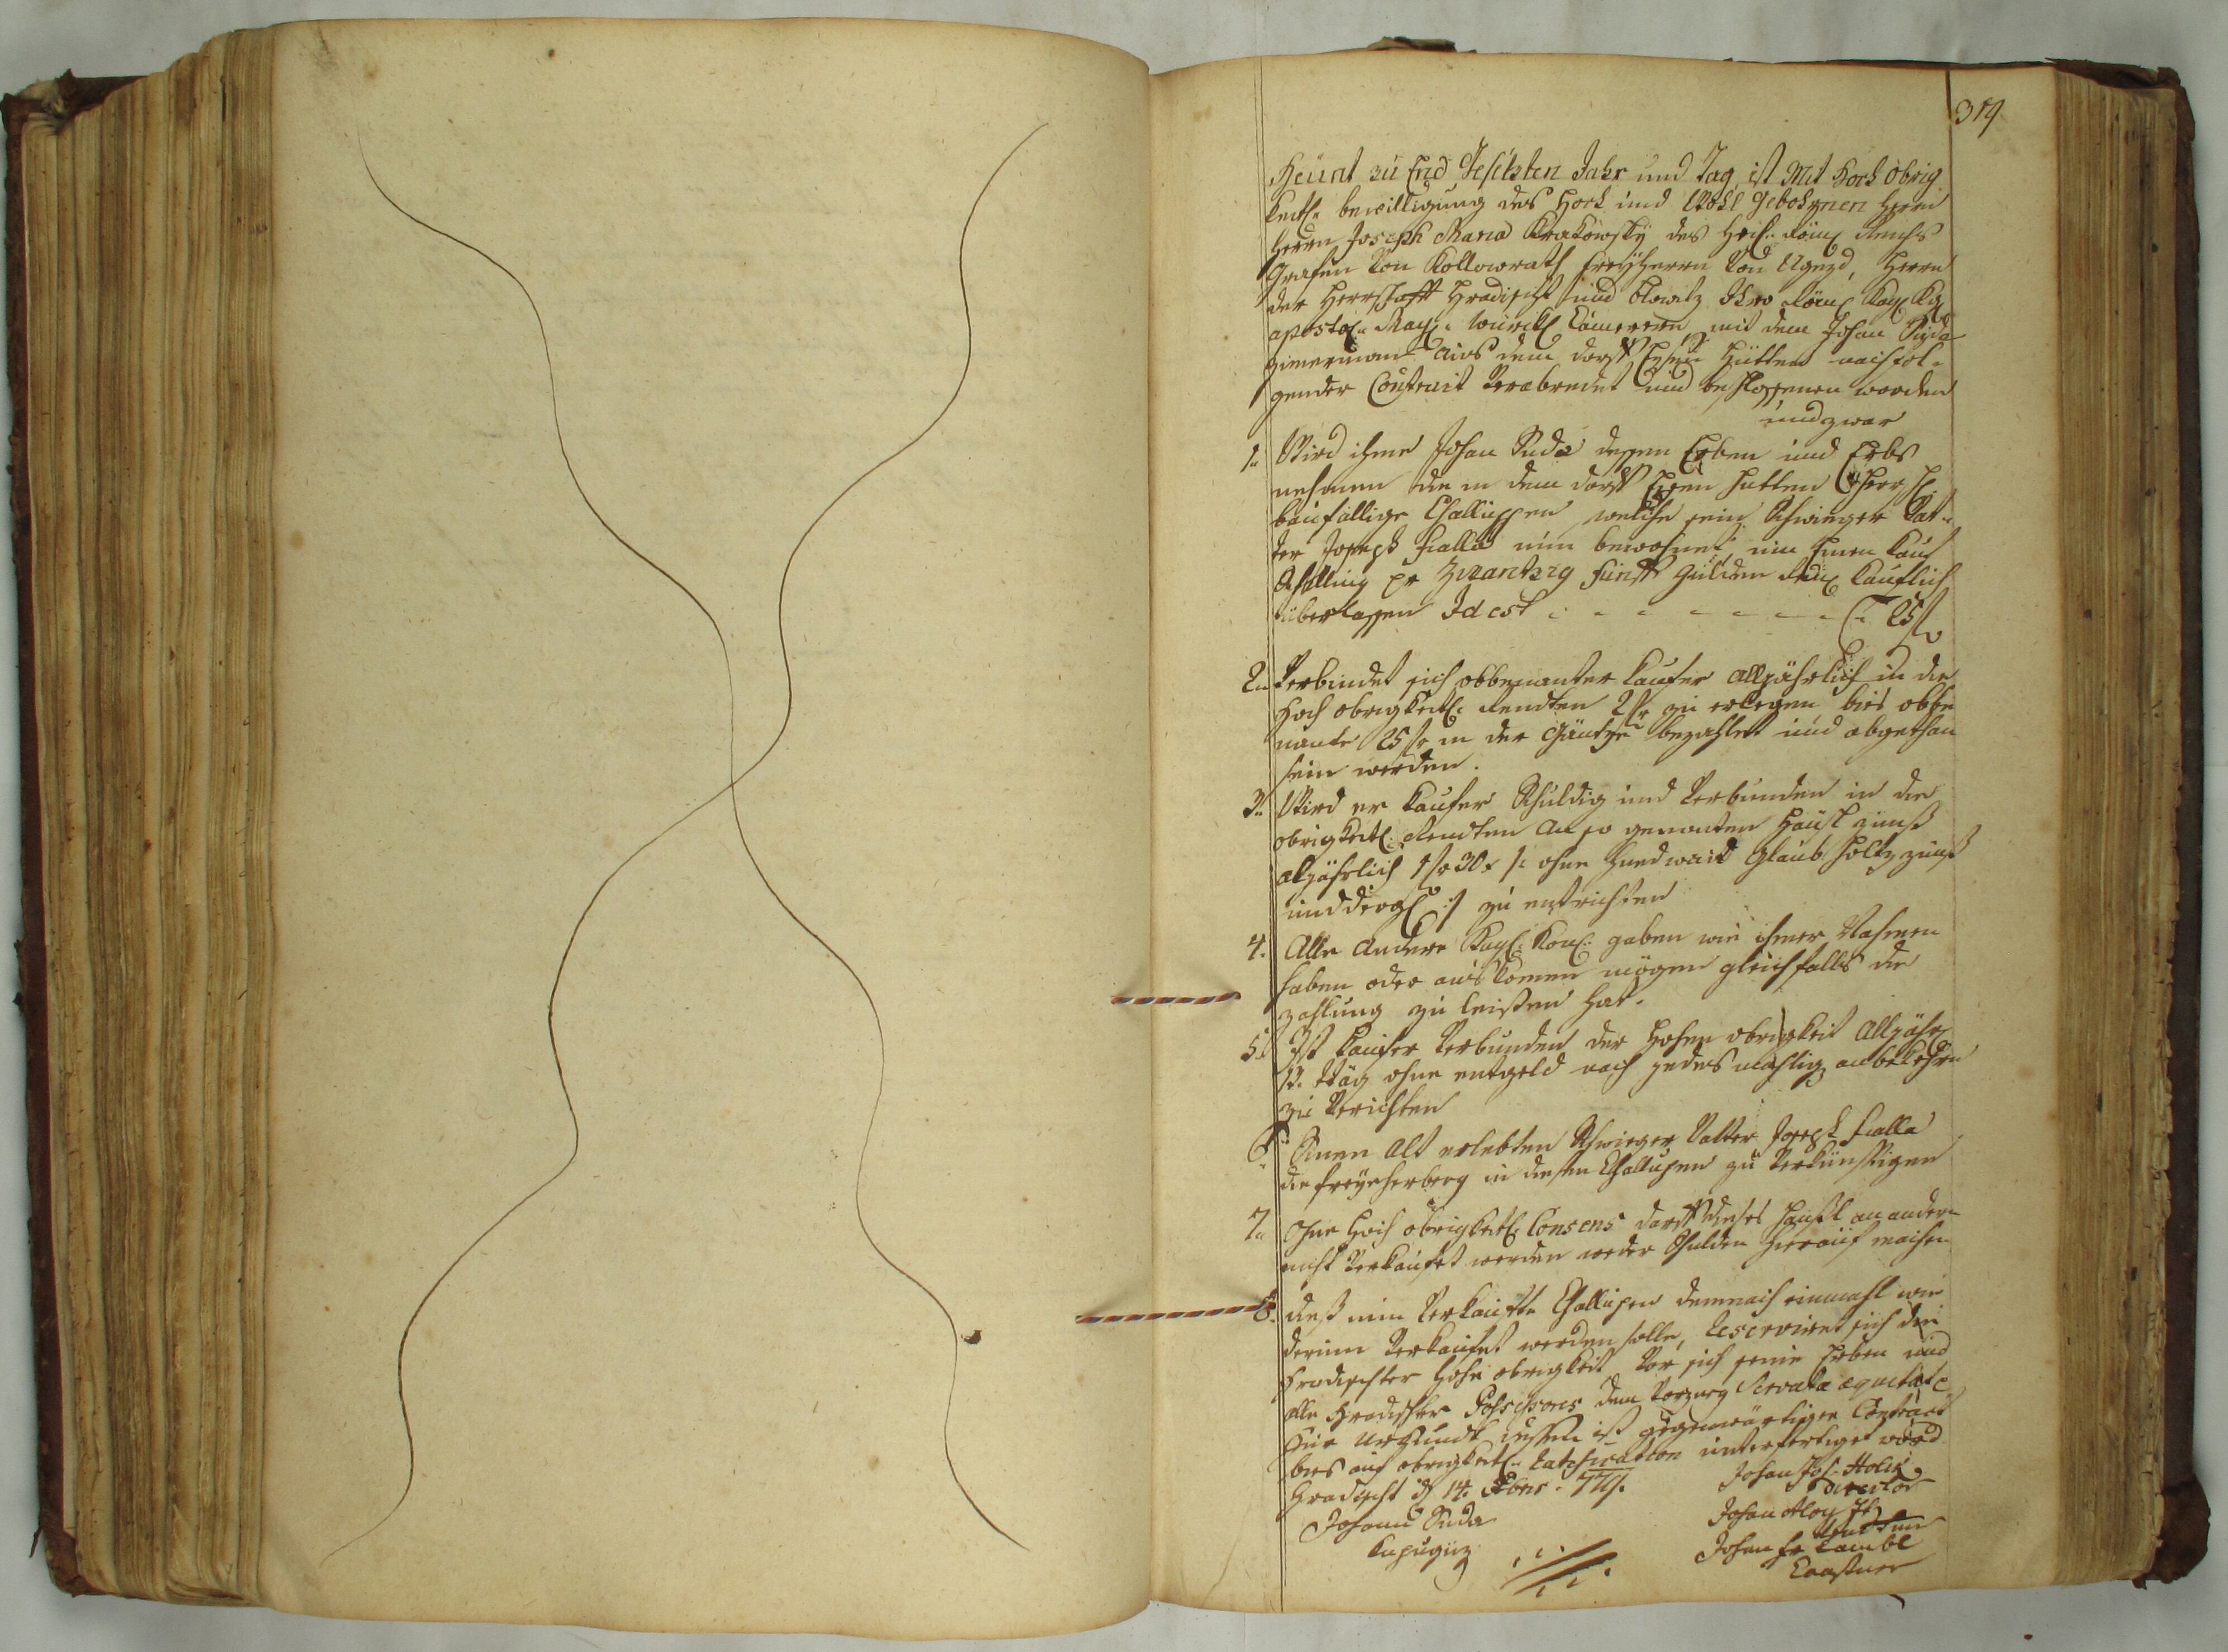 319
Heünt zu End Gesetzten Jahr und Tag ist Mit Hoch obrig
keitl. bewilligung des Hoch und Wohl Gebohrnen Herrn
Herrn Joseph Maria Krakowsky des Heil: Röm: Reichs
Grafen Von Kollowrath Freyherrn Von Ugezd, Herrn
der Herrschafft Hradischt und Blowitz Ihro Röm: Kay: Kö:
apostol. May: würckl: Camerern mit dem Johan Suda
Zimerman aus dem dorff Eysen Hütten nachfol-
gender Contract Verabredet und beschlossenen worden
und zwar
1. Wird ihme Johan Suda dessen Erben und Erbs
nehmern die in dem dorff Eysen Hütten
baufällige Challuppen welche sein Schwieger Vat-
ter Joseph Fialla nun bewohnet, um Einen Kauf
Schilling pr Zwantzig fünff Gulden Kauflich
überlassen Id est - - - - - - 25 f
2. Verbindet sich obbenanter Kaufer alljährlich in die
Hoch obrigkeitl: Rendten 2 f zu erlegen bies obbe
nante 25 f in der Gäntze bezahlet und abgethan
sein werden.
3. Wird er Kaufer Schuldig und Verbunden in die
obrigkeitl: Rendten an so genanten Hausl zinß
alljährlich 1 f 30 x /: ohne Glaub holtz zinß
und dergl: :/ zu entrichten
4. Alle andere Kay: König: gaben wie ihmer Nahmen
haben oder auskomen mögen gleichfalls die
zahlung zu leisten hat.
5. Ist Kaufer Verbunden der Hohen obrigkeit Alljährl:
13. täg ohne entgeld nach jedes mahlig anbefehlen
zu Verrichten
6. Seinen Alt erlebten Schwieger Vatter Joseph Fialla
die freye herberg in diesen Challupen zu Vergünstigen
7. Ohne Hoch obrigkeitl: Consens darff dieses Hausl an andere
nicht Verkaufet werden weder Schulden hierauf machen
8. dieß nun Verkaufte Challupen demnach einmahl wie
derum Verkaufet werden solle, Reserviret sich die
Hradischter Hohe obrigkeit Vor sich seine Erben und
alle Hradischter Possessores dem Vorzueg Servata aequitate
Zur Urkundt dessen ist gegenwärtiger Contract
bies auf obrigkeitl: Ratification unterfertiget word
Hradischt d 14. Xbris
Johann Suda
Johan Jos: Holik
Director
Johan Aloy
Johan Fr Lambl
Castner